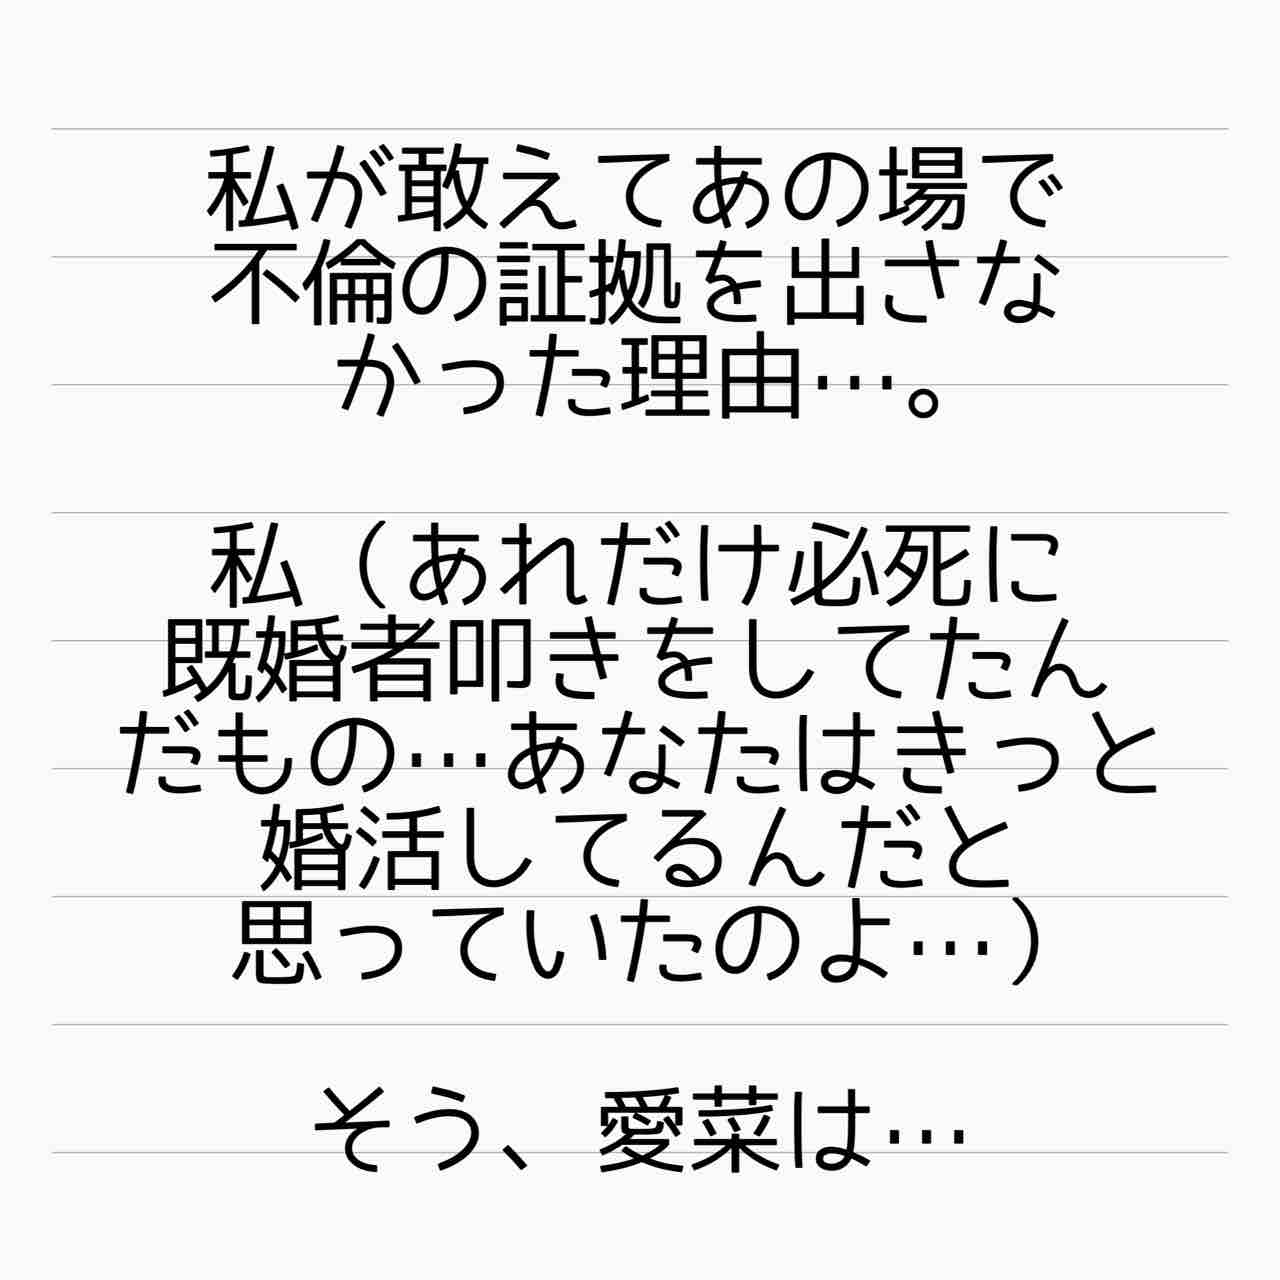 私が敢えてあの場で
不倫の証拠を出さな
かった理由…。
私（あれだけ必死に
既婚者叩きをしてたん
だもの…あなたはきっと
婚活してるんだと
思っていたのよ…）
そう、愛菜は…